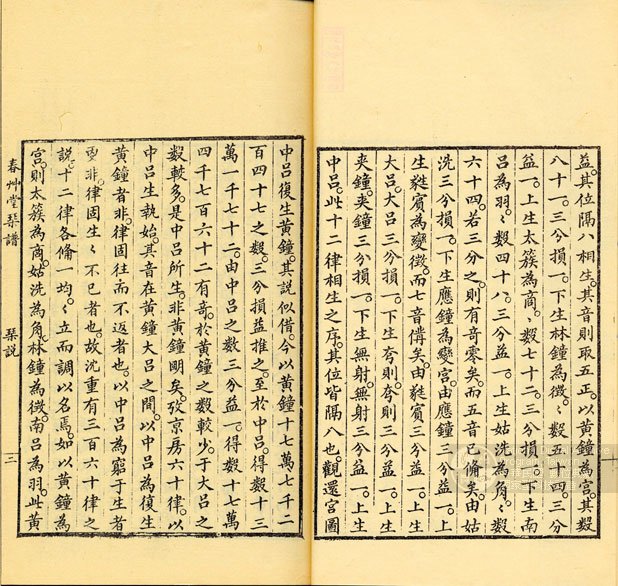 益。其位隔八相生。其音則取五正。以黃鐘為宮。其數
八十一。三分損一。下生林鐘為徵。〻數五十四。三分
益一。上生太簇為商。〻數七十二。三分損一。下生南
呂為羽。〻數四十八。三分益一。上生姑洗為角。〻數
六十四。若三分之。則有奇零矣。而五音已備矣。由姑
洗三分損一。下生應鐘為變宮。由應鐘三分益一。上
生蕤賓為變徵。而七音備矣。由蕤賓三分益一。上生
大呂。大呂三分損一。下生夷則。夷則三分益一。上生
夾鐘。夾鐘三分損一。下生無射。無射三分益一。上生
中呂。此十二律相生之序。其位皆隔八也。觀還宮圖
中呂復生黃鐘。其説似借。今以黃鐘十七萬七千二
百四十七之數。三分損益推之。至於中呂。得數十三
萬一千七十二。由中呂之數三分益一。得數十七萬
四千七百六十二有奇。於黃鐘之數較少。于大呂之
數較多。是中呂所生。非黃鐘明矣。攷京房六十律。以
中呂生執始。其音在黃鐘大呂之間。以中呂為復生
黃鐘者。非。律固往而不返者也。以中呂為窮于生者
非。律固生〻不已者也。故沈重有三百六十律之
説。十二律各備一均。〻立而調以名焉。如以黃鐘為
宮。則太簇為商。姑洗為角。林鐘為徵。南呂為羽。此黃
春艸堂琴譜 琴説 三